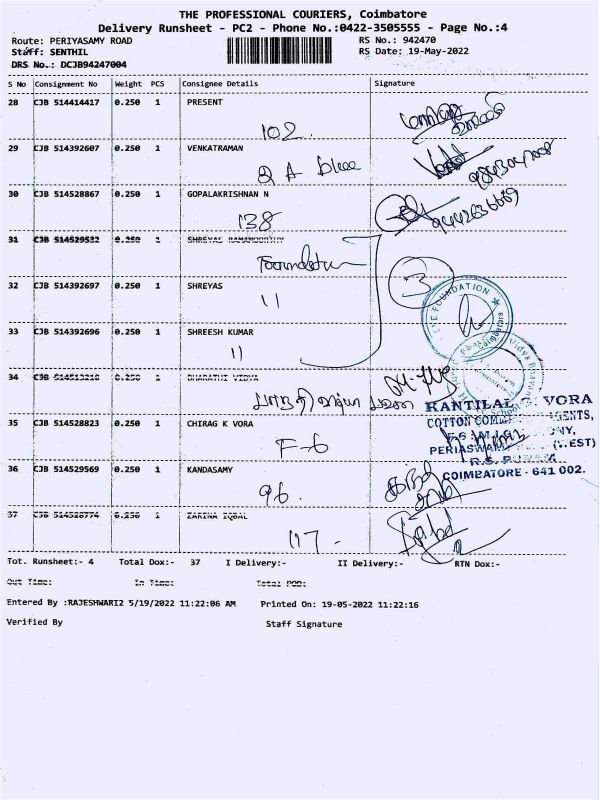 THE PROFESSIONAL COURIERS, Coimbatore
Delivery Runsheet - PC2 - Phone No.:0422-3505555 - Page No.:4
Route: PERIYASAMY ROAD RS No.: 942470
Staff: SENTHIL RS Date: 19-May-2022
DRS No.: DCJB94247004
S No Consignment No Weight PCS Consignee Details Signature
28 CJB 514414417 0.250 1 PRESENT
102.
29 CJB 514392607 0.250 1 VENKATRAMAN
30 CJB 514528867 0.250 1 GOPALAKRISHNAN N
138
31 CJB 514529532 0.250 1 SHREYAS RAMAMOORTHY
Foundation
3
32 CJB 514392697 0.250 1 SHREYAS
11
EYE FOUNDATION
Coimbatore
33 CJB 514392696 0.250 1 SHREESH KUMAR
11
34 CJB 514513218 0.250 1 BHARATHI VIDYA
KANTILAL VORA
35 CJB 514528823 0.250 1 CHIRAG K VORA
F-6
COIMBATORE - 641 002.
36 CJB 514529569 0.250 1 KANDASAMY
96.
37 CJB 514528774 0.250 1 ZAKINA IQBAL
117 -
Tot. Runsheet:- 4 Total Dox:- 37 I Delivery:- II Delivery:- RTN Dox:-
Out Time: In Time: Total POD:
Entered By :RAJESHWARI2 5/19/2022 11:22:06 AM Printed On: 19-05-2022 11:22:16
Verified By Staff Signature